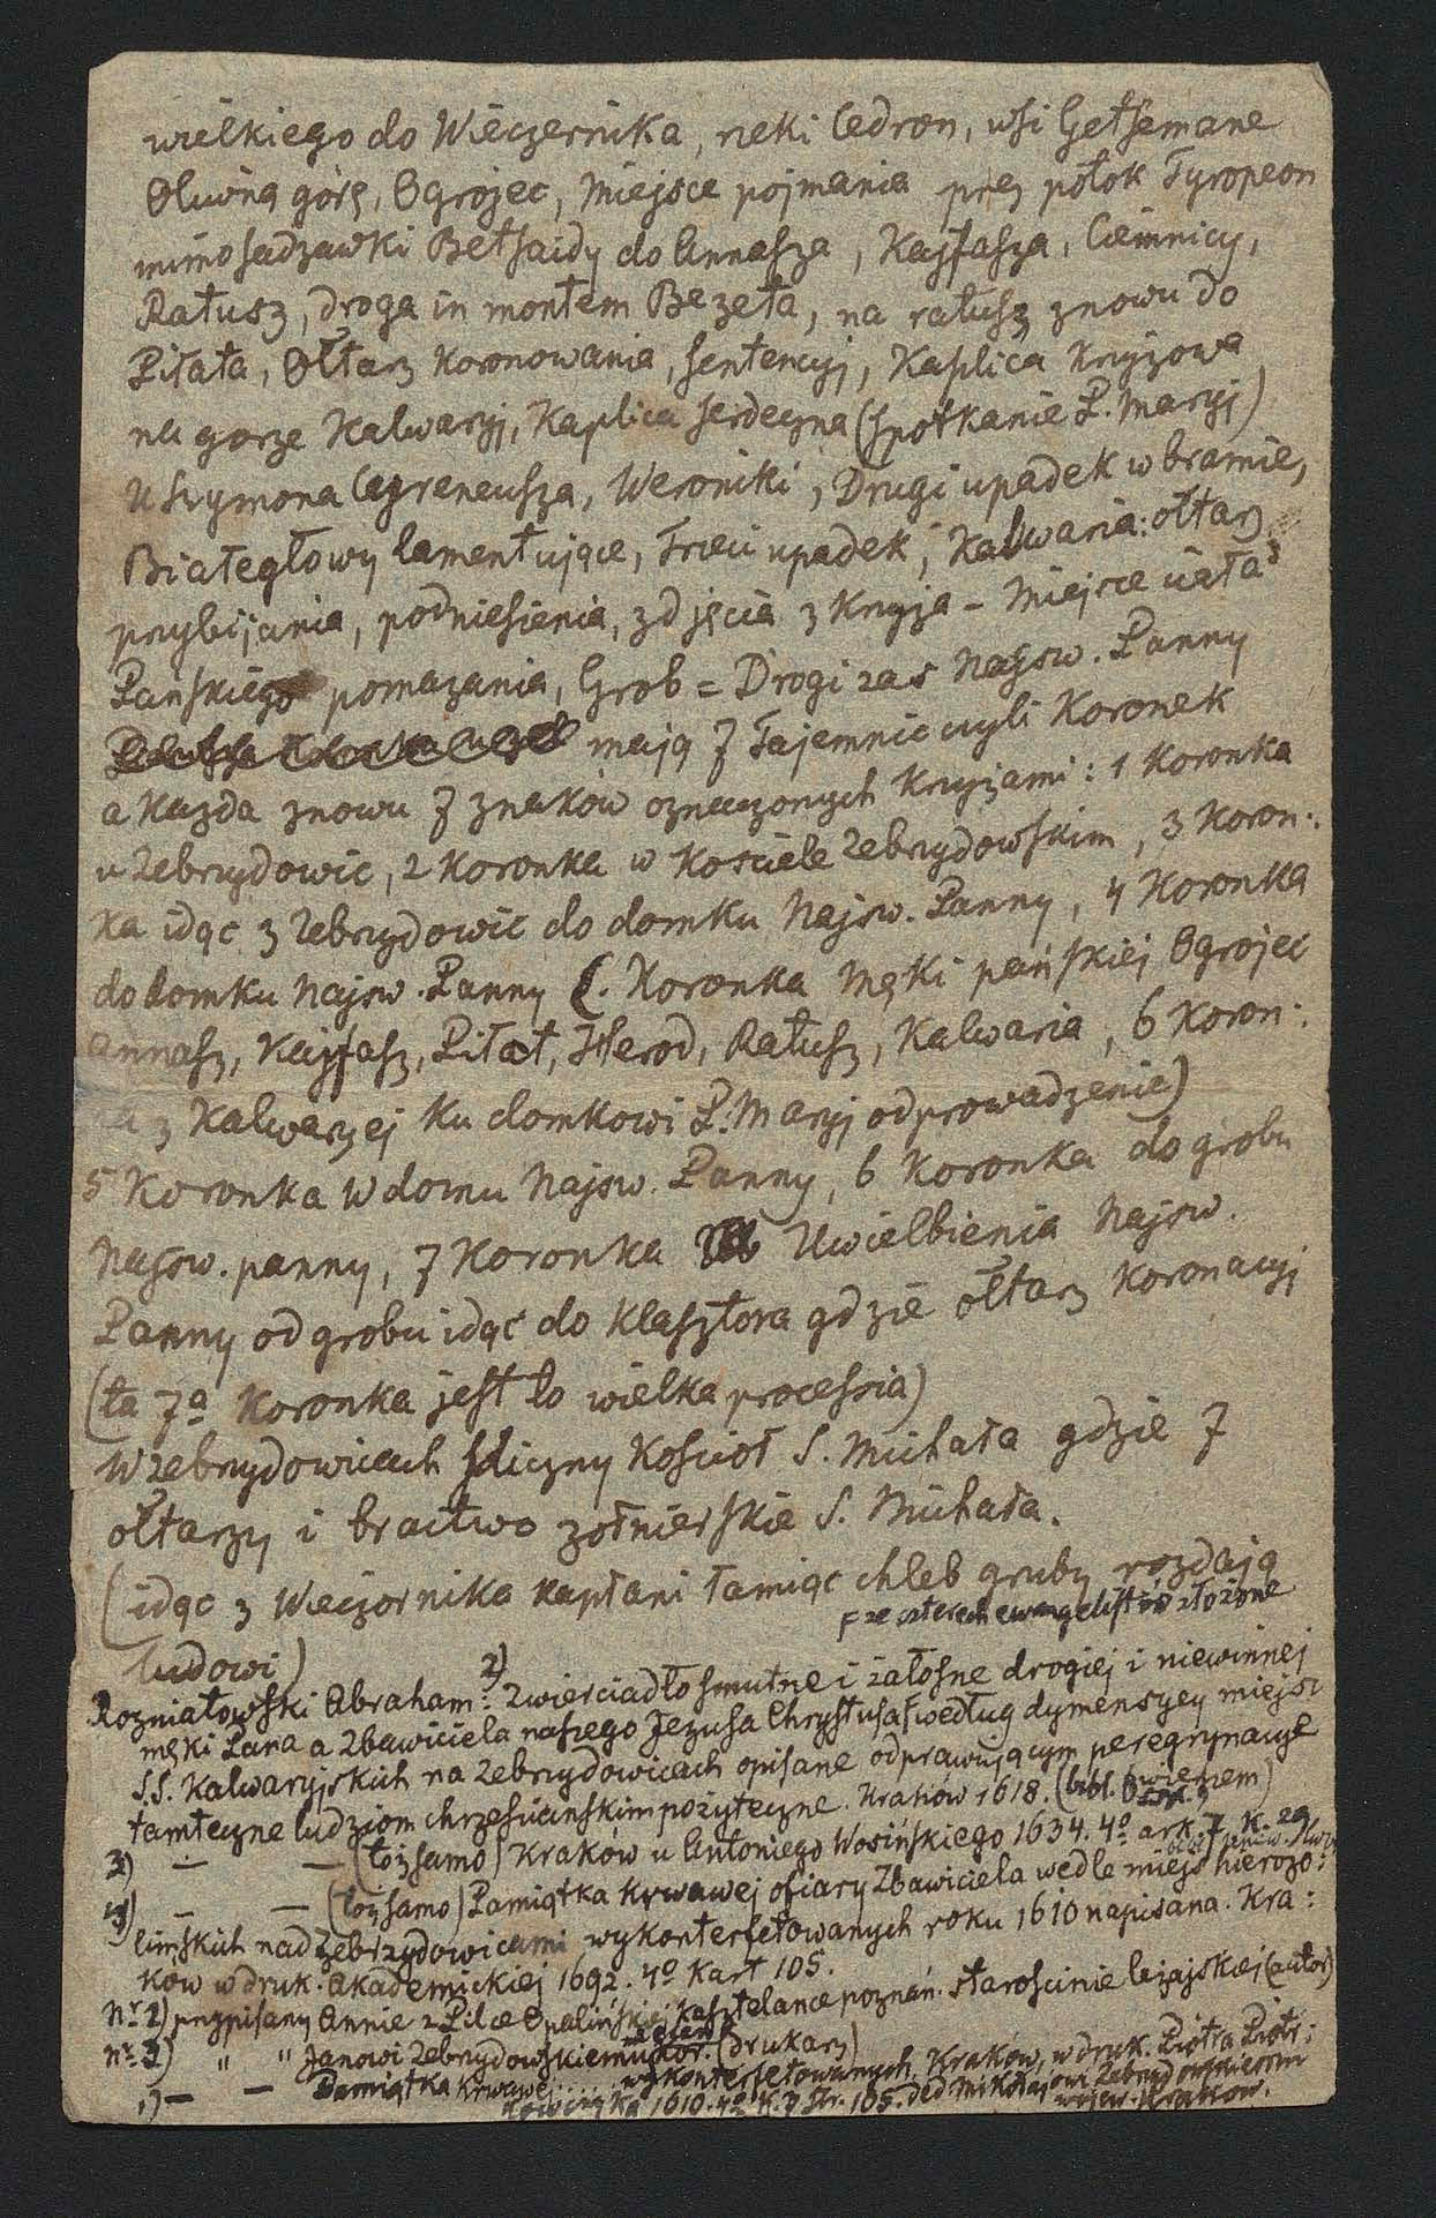 wielkiego do Wieczernika, rzeki Cedron, wsi Getsemane
Oliwną górę, Ogrojec, Miejsce pojmania prez potok Tyropeon
mimo sadzawki Betsaidy do Annasza, Kajfasza, Ciemnicy,
Ratusz, droga in montem Bezeta, na ratusz znowu do
Piłata, Ołtarz Koronowania, sentencyj, Kaplica Kryżowa
na gorze Kalwaryj, Kaplica serdeczna (spotkanie P. Maryj)
U Szymona Cyreneusza, Weroniki, Drugi upadek w bramie,
Białegłowy lamentujące, Trzeci upadek, Kalwaria: ołtarz
przybijania, podniesienia, zdjęcia z Kryża - Miejsce ciała
Pańskiego pomazania, Grob = Drogi zas Najsw. Panny
mają 7 Tajemnic czyli Koronek
a Każda znowu 7 znaków oznaczonych Kryżami: 1 Koronka
u Zebrzydowic, 2 Koronka w Kosciele Zebrzydowskim, 3 Koron:
ka idąc z Zebrzydowic do domku Najsw. Panny, 4 Koronka
do domku Najsw. Panny (. Koronka Męki pańskiej Ogrojec
Annasz, Kajfasz, Piłat, Herod, Ratusz, Kalwaria, 6 Koron:
ka z Kalwaryej Ku domkowi P. Maryj odprowadzenie)
5 Koronka w domu Najsw. Panny, 6 Koronka do grobu
Najsw. panny, 7 Koronka Uwielbienia Najsw.
Panny od grobu idąc do Klasztora gdzie ołtarz Koronacyj
(ta 7a Koronka jest to wielka processia)
W Zebrzydowicach sliczny Kosciół S. Michała gdzie 7
ołtarzy i bractwo zołnierskie S. Michała.
(idąc z Wieczornika Kapłani łamiąc chleb gruby rozdają
ludowi)
F ze czterech ewangelistów złożone
Rozniatowski Abraham: 2) Zwierciadło smutne i żałosne drogiej i niewinnej
męki Pana a Zbawiciela naszego Jezusa Chrystusa F według dymensyey miejsc
S.S. Kalwaryjskich na Zebrzydowicach opisane odprawującym peregrynacye
tamteczne ludziom chrzescianskim pożyteczne. Kraków 1618. (bibl.
3) — — (toż samo) Kraków u Antoniego Wosińskiego 1634. 4o ark. 7. K. 29
4) — — (toż samo) Pamiątka Krwawej ofiary Zbawiciela wedle miejs hierozo:
limskich nad Zebrzydowicami wykonterfetowanych roku 1610 napisana. Kra:
ków w druk. akademickiej 1692. 4o Kart 105.
Nr. 2) przypisany Annie z Pilce Opalińskiej Kasztelance poznań. starościnie leżajskiej (autor)
nr. 3) " " Janowi Zebrzydowskiemu (drukarz)
1) — — Pamiątka Krwawej..... wykonterfetowanych. Kraków, w druk. Piotra Piotr:
kowczyka 1610. 4o K. 7 str. 105. Ded Mikołajowi Zebrzydowskiemu
wojew. Krakow.